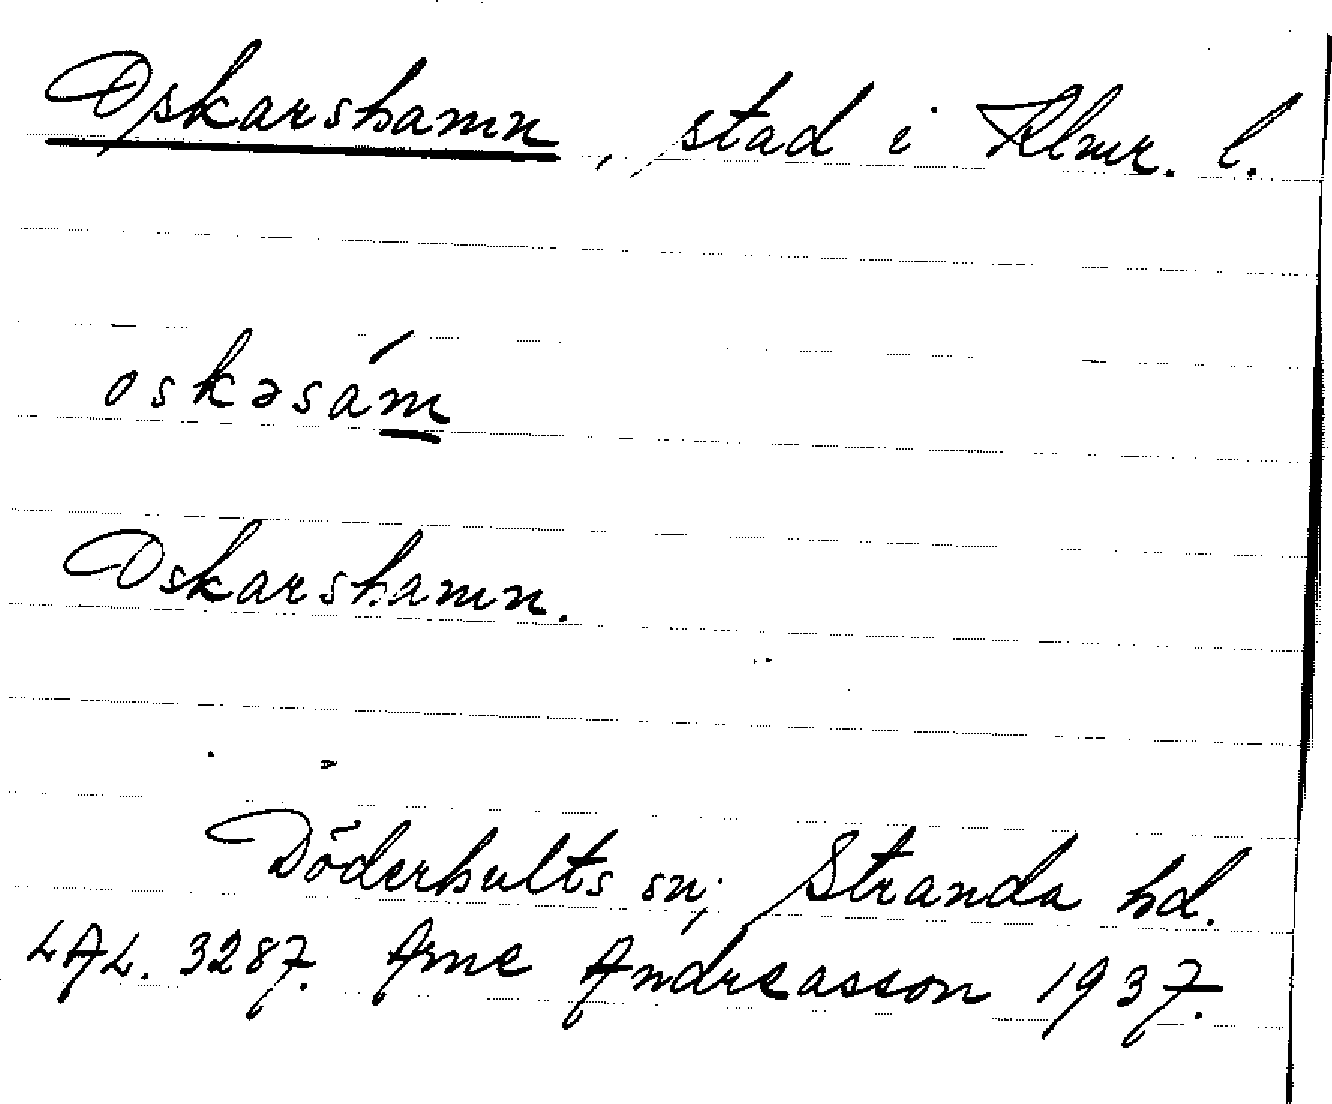 Oskarshamn, stad i Klmr. l.
oskəsám
Oskarshamn.
Döderhults sn; Stranda hd.
LAL. 3287. Arne Andreasson 1937.